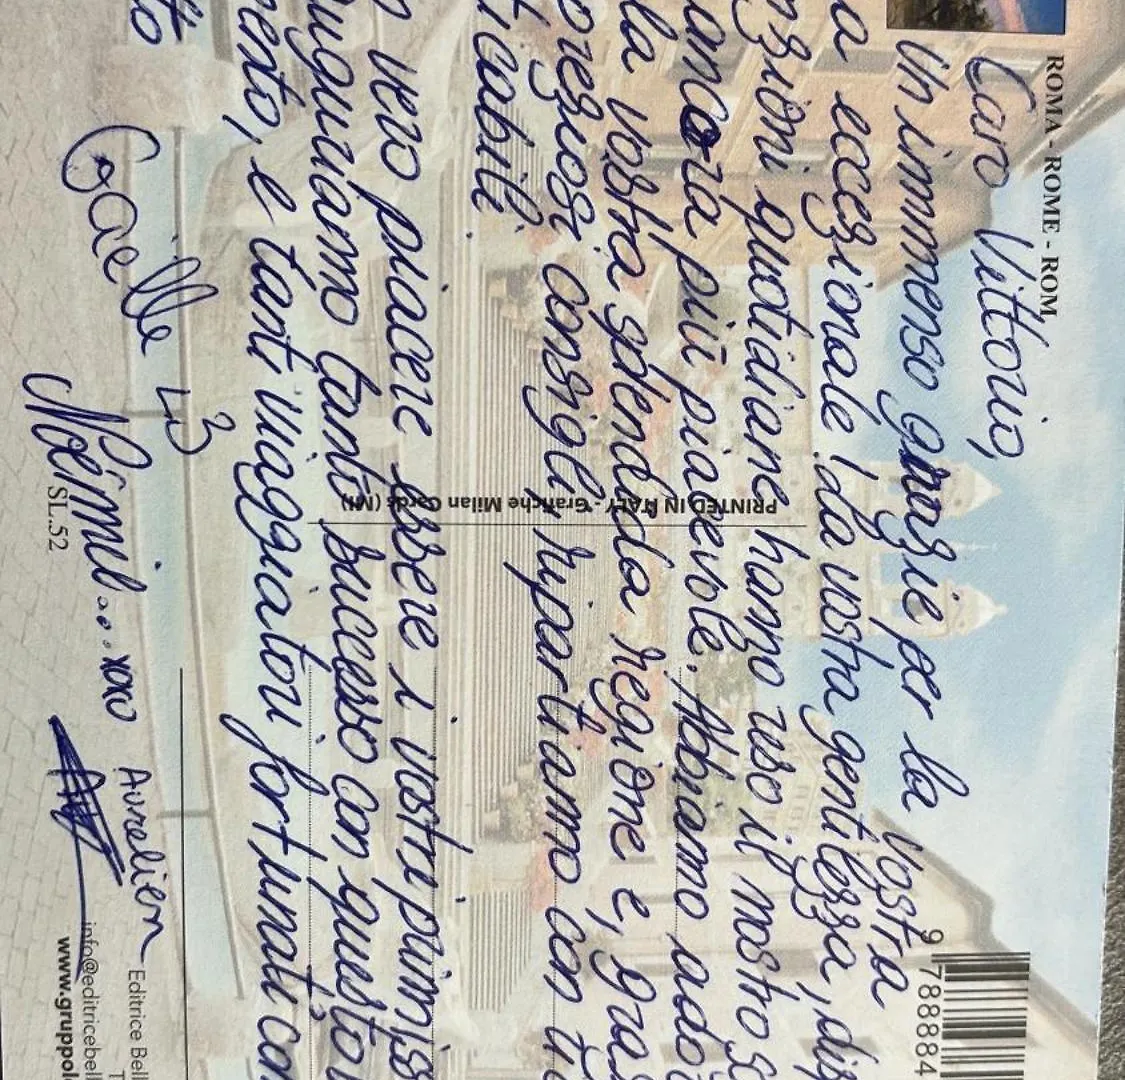 ROMA - ROME - ROM
Caro Vittorio,
Un immenso grazie per la vostra
a eccezionale ! da vostra gentilezza, disp
zioni quotidiane hanno reso il nostro s
ancora più piacevole. Abbiamo ador
la vostra splendida regione e, graz
preziosi consigli, ripartiamo con
ticabili
vero piacere essere i vostri primi
auguriamo tanto successo con questo
mento, e tanti viaggiatori fortunati com
Gaëlle
Noémie... xoxo
Aurelien
PRINTED IN ITALY - Grafiche Milan Cards (MI)
SL.52
9 788884
Editrice Bell
info@editricebell
www.gruppol